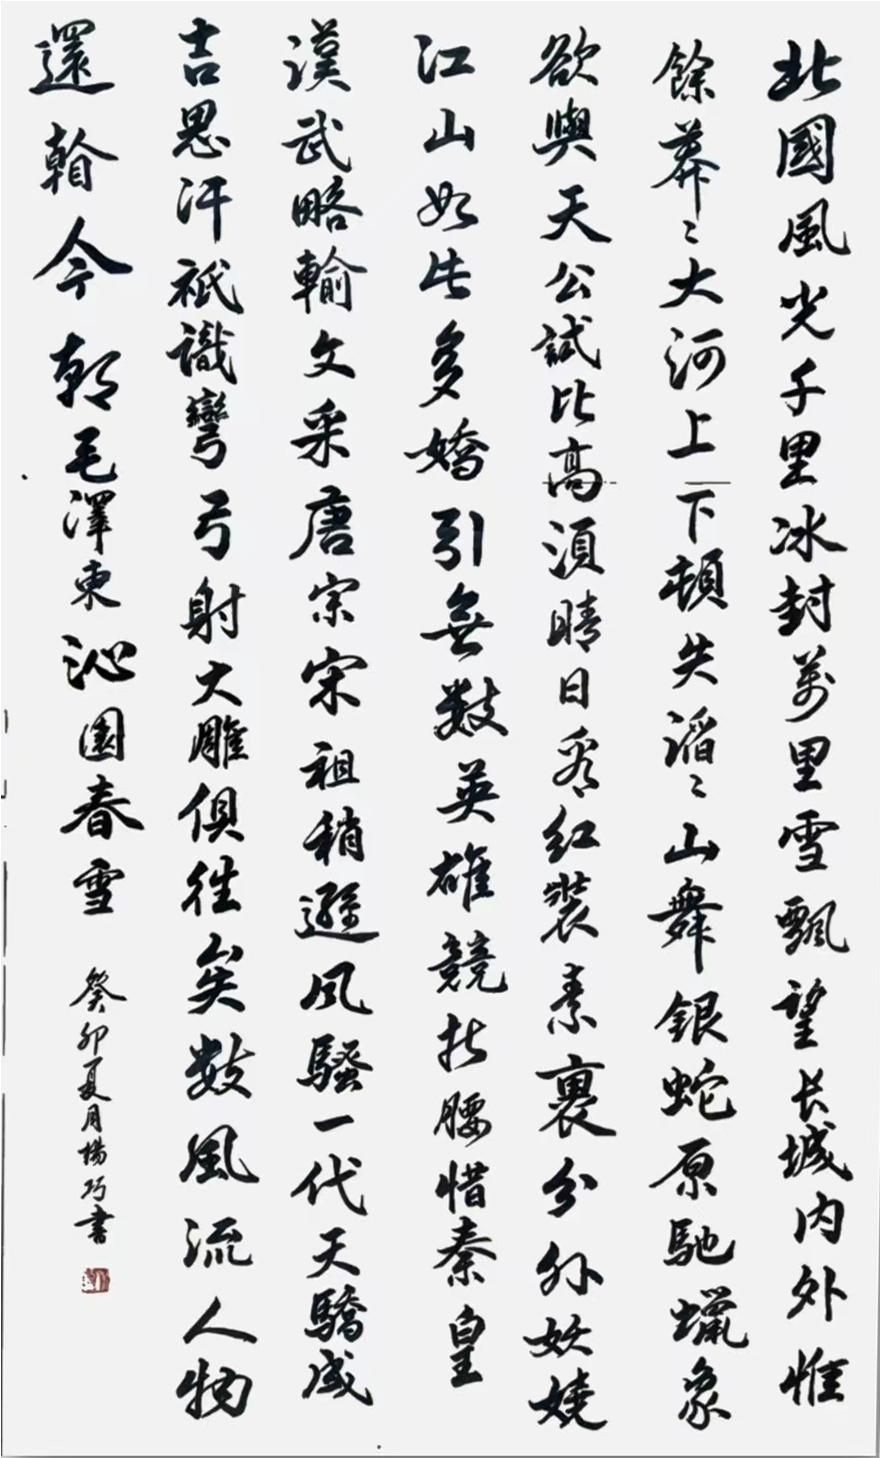 北國風光千里冰封萬里雪飄望长城内外惟
餘莽〻大河上下頓失滔〻山舞銀蛇原馳蠟象
欲與天公試比高須晴日看红裝素裹分外妖嬈
江山如此多嬌引無數英雄競折腰惜秦皇
漢武略輸文采唐宗宋祖稍遜风騷一代天驕成
吉思汗祇識彎弓射大雕俱往矣數風流人物
還看今朝毛澤東沁園春雪 癸卯夏月楊巧書